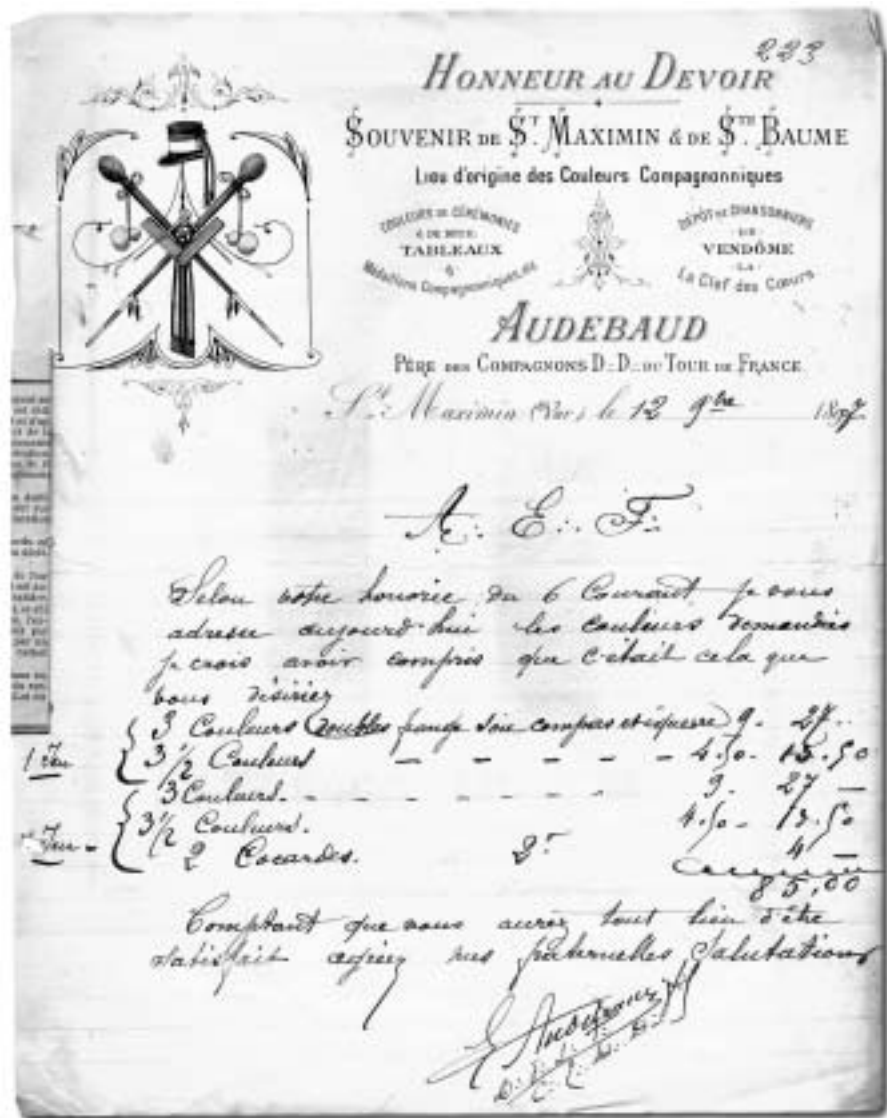 223
HONNEUR AU DEVOIR
SOUVENIR DE ST. MAXIMIN & DE STE. BAUME
Lieu d'origine des Couleurs Compagnonniques
COULEURS DE CÉRÉMONIES
TABLEAUX
&
Médaillons Compagnonniques, etc
DÉPÔT DE CHANSONNIERS
DE
VENDÔME
LA
La Clef des Cœurs
AUDEBAUD
PÈRE DES COMPAGNONS D∴D∴ DU TOUR DE FRANCE
St. Maximin (Var), le 12 9bre 1897
A∴ E∴ F∴
Selon votre honorée du 6 Courant je vous
adresse aujourd'hui les couleurs demandées
je crois avoir compris que c'était cela que
vous désiriez
1 Jeu
3 Couleurs (doubles frange soie compas et équerre) 9. 27..
3 1/2 Couleurs - - - - - 4.50. 13.50
Jeu
3 Couleurs. - - - - - - 9. 27 -
3 1/2 Couleurs. 4.50 - 13.50
2 Cocardes. 2f 4 -
85,00
Comptant que vous aurez tout lieu d'être
satisfait agréez mes fraternelles Salutations